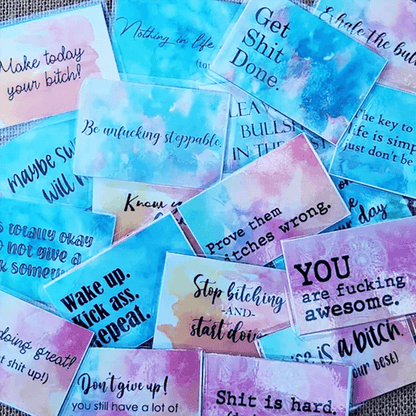 Make today
your bitch!
Nothing in life
Get
Shit
Done.
Exhale the
Be unfucking stoppable.
LEAVE
BULLSH
IN THE
The key to
life is simp
just don't be
maybe
will
Know
Prove them
itches wrong.
day
totally okay
not give a
Wake up.
Kick ass.
Repeat.
Stop bitching
-AND-
start doin
YOU
are fucking
awesome.
is a bitch.
ur best)
doing great!
t shit up!)
Don't give up!
you still have a lot of
Shit is hard.